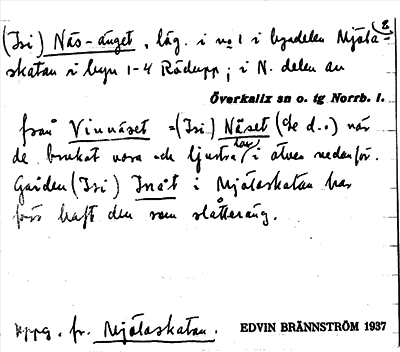 2
(Isi) Näs-änget, läg. i no 1 i byadelen Mjöla-
skatan i byn 1-4 Rödupp; i N. delen av
Överkalix sn o. tg Norrb. l.
från Vinnäset =(Isi) Näset (se d..) när
de brukat vara och ljustra har i älven nedanför.
Gården (Isi) Inåt i Mjölaskatan har
förr haft den som slåtteräng.
Uppg. fr. Mjölaskatan.
EDVIN BRÄNNSTRÖM 1937